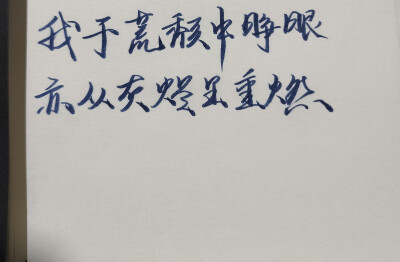 我于荒颓中睁眼
亦从灰烬里重燃